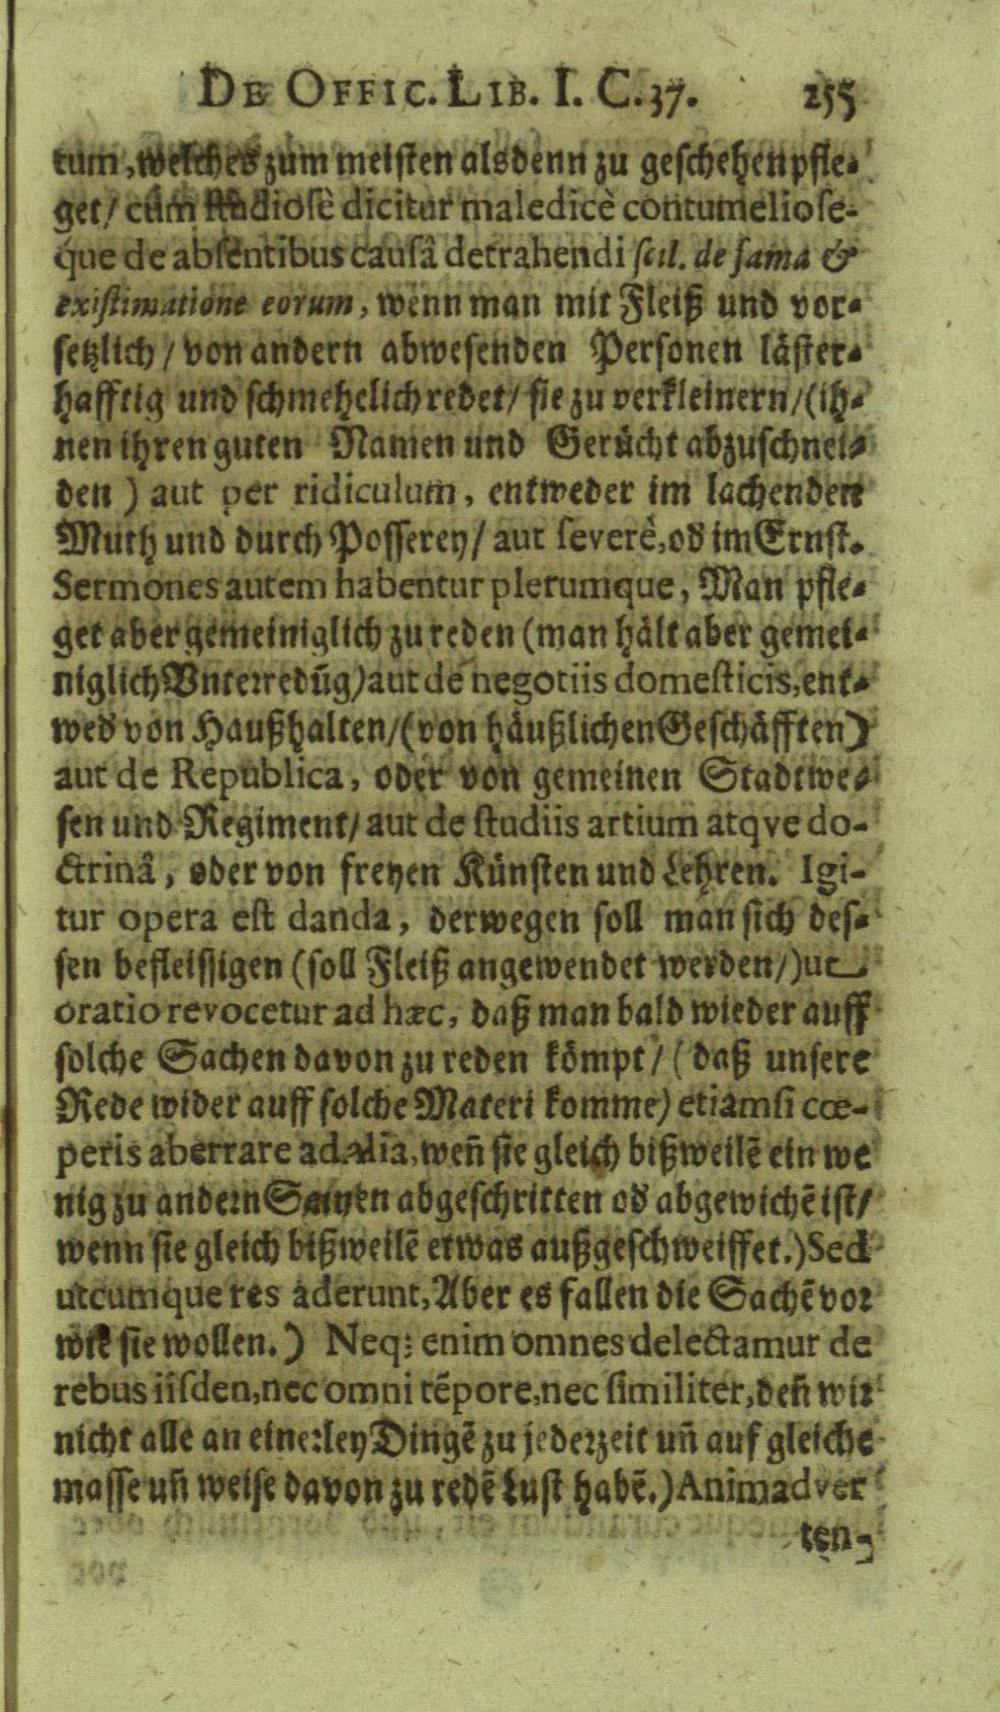 DE OFFIC. LIB. I. C. 37. 255
tum, welches zum meisten alsdenn zu geschehen pfle-
get/ cùm studiosè dicitur maledicè contumeliose-
que de absentibus causâ detrahendi scil. de fama &
existimatione eorum, wenn man mit Fleiß und vor-
setzlich/ von andern abwesenden Personen läster-
hafftig und schmehelich redet/ sie zu verkleinern/ (ih-
nen ihren guten Namen und Gerücht abzuschnei-
den) aut per ridiculum, entweder im lachenden
Muth und durch Posserey/ aut severè, od im Ernst.
Sermones autem habentur plerumque, Man pfle-
get aber gemeiniglich zu reden (man hält aber gemei-
niglich Vnterredūg) aut de negotiis domesticis, ent-
wed von Haußhalten/ (von häußlichen Geschäfften)
aut de Republica, oder von gemeinen Stadtwe-
sen und Regiment/ aut de studiis artium atqve do-
ctrinâ, oder von freyen Künsten und Lehren. Igi-
tur opera est danda, derwegen soll man sich des-
sen befleissigen (soll Fleiß angewendet werden/) ut
oratio revocetur ad hæc, daß man bald wieder auff
solche Sachen davon zu reden kömpt/ (daß unsere
Rede wider auff solche Materi komme) etiamsi cœ-
peris aberrare ad alia, weñ sie gleich bißweilē ein we
nig zu andern abgeschritten od abgewichē ist/
wenn sie gleich bißweilē etwas außgeschweiffet.) Sed
utcumque res aderunt, Aber es fallen die Sachē vor
wie sie wollen.) Neq; enim omnes delectamur de
rebus iisden, nec omni tēpore, nec similiter, deñ wir
nicht alle an einerley Dingē zu jederzeit uñ auf gleiche
masse uñ weise davon zu redē Lust habē.) Animadver
ten-